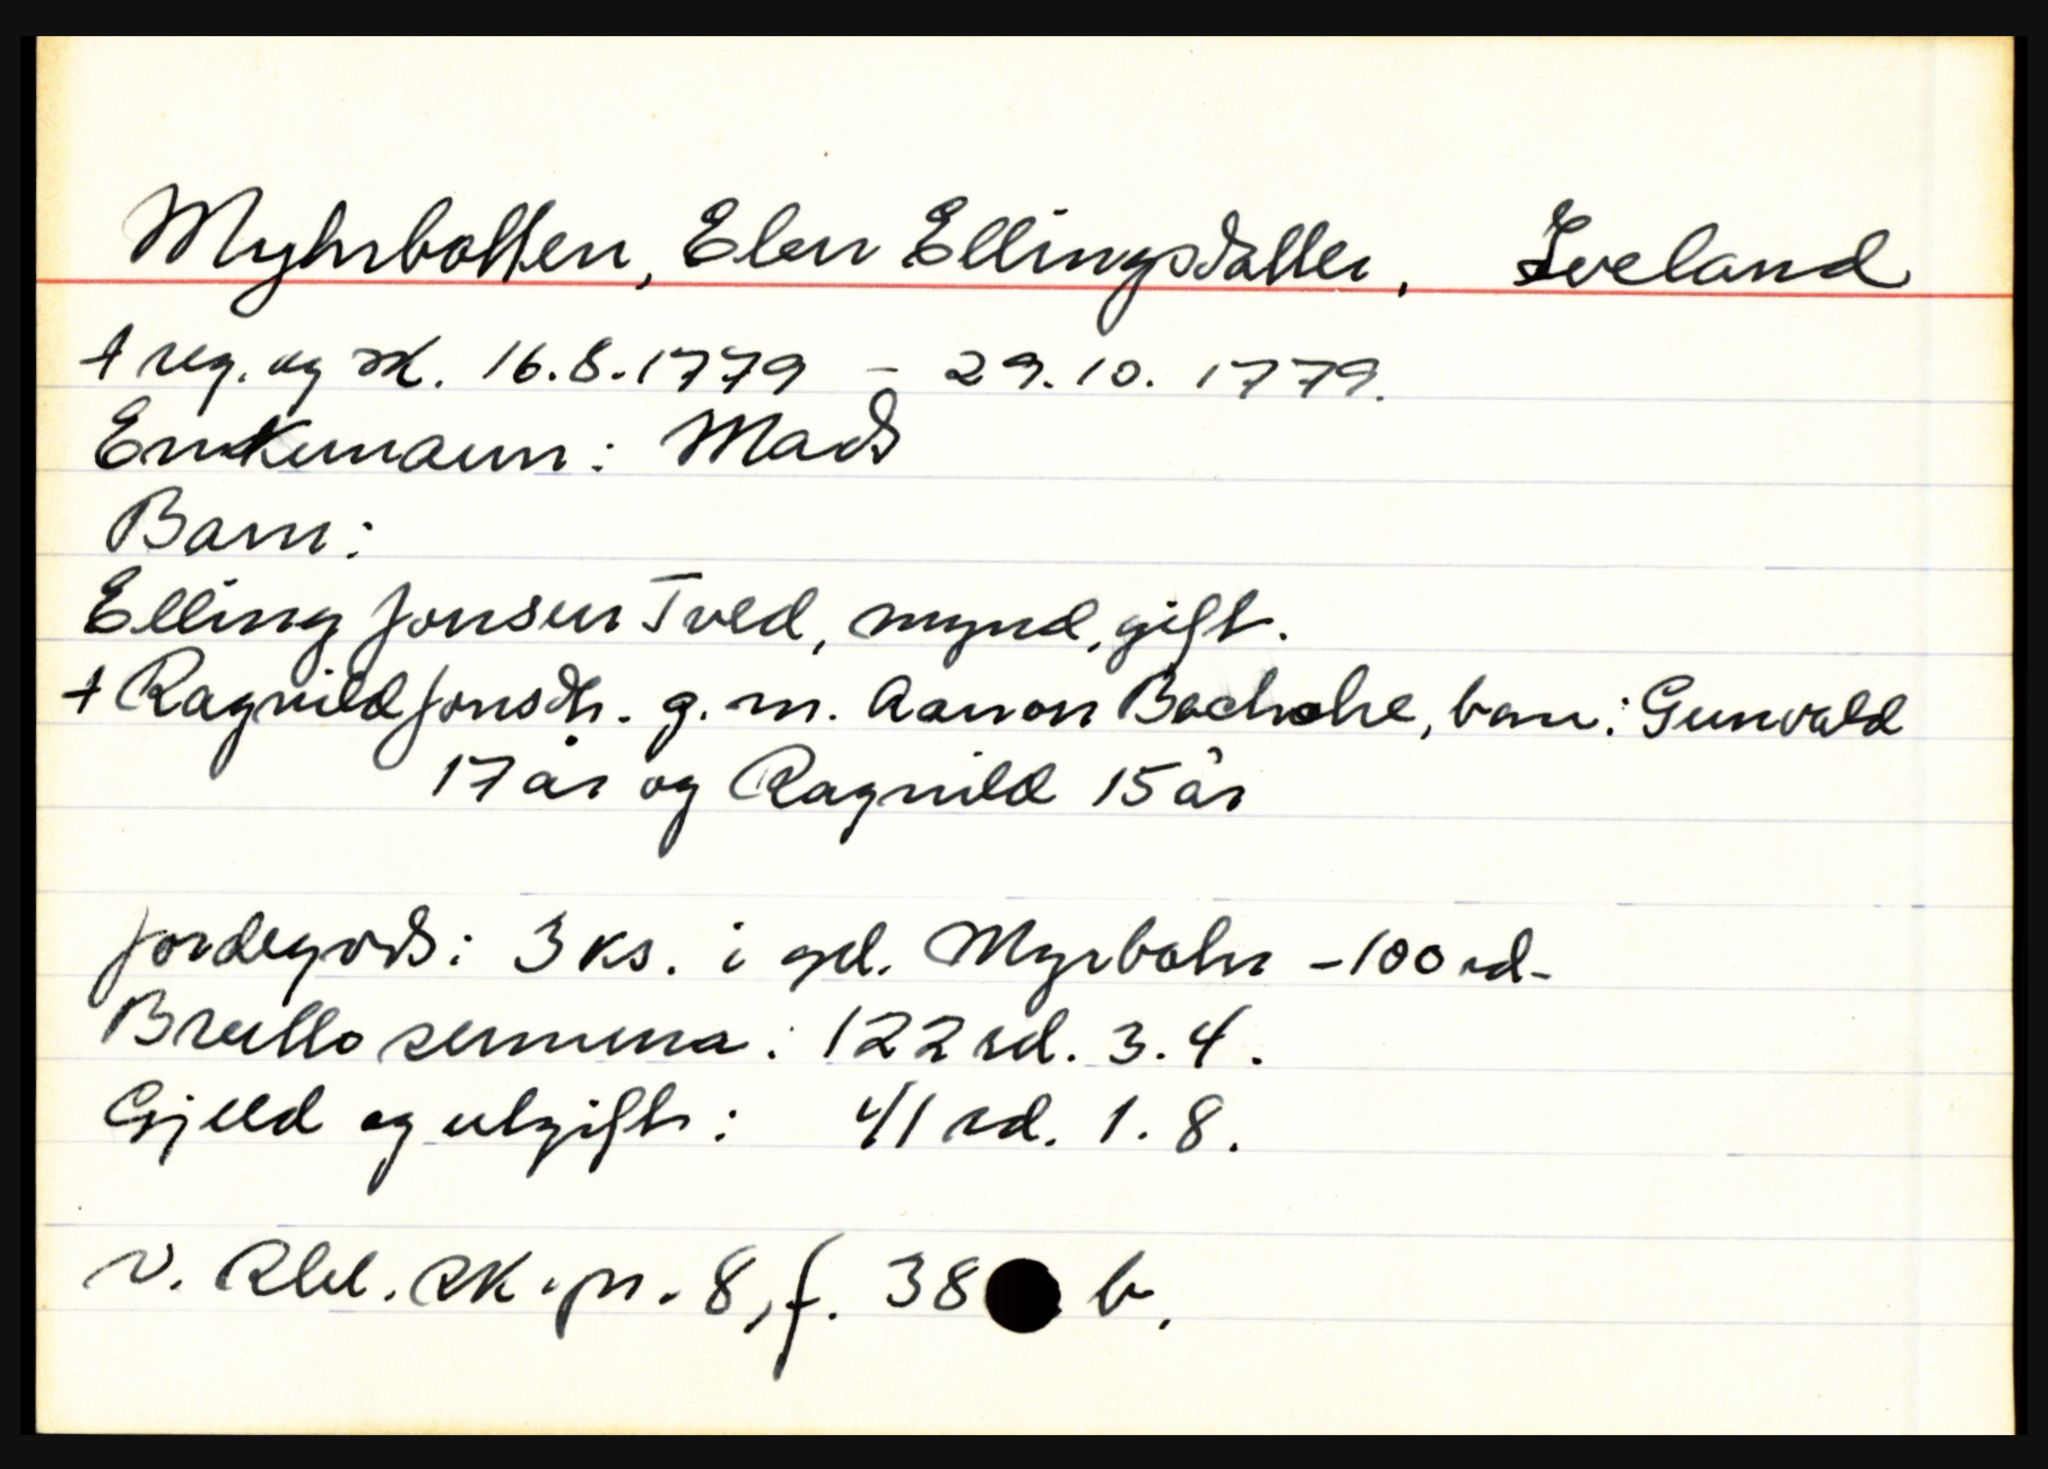 Myhrbotten, Elen Ellingsdatter, Iveland
† reg. og sk. 16.8.1779 - 29.10.1779.
Enkemann: Mads
Barn:
Elling Jonsen Tved, mynd, gift.
† Ragnild Jonsdtr. g.m. Aanon Bachohe, barn: Gunvald
17 år og Ragnild 15 år
Jordegods: 3 ks. i gd. Myrbotn -100 rd-
Brutto summa: 122 rd. 3. 4.
Gjeld og utgifter: 41 rd. 1. 8.
V. Rbl. sk. pr. 8, f. 38 b.